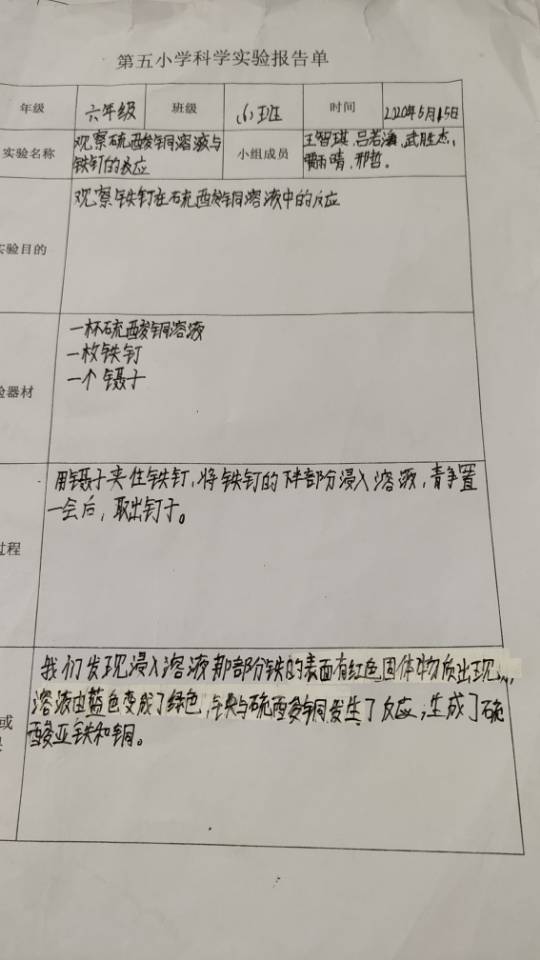 第五小学科学实验报告单
年级 六年级 班级 六班 时间 2020年5月15日
实验名称 观察硫酸铜溶液与
铁钉的反应
小组成员 王智琪、吕若涵、武胜杰、
雨晴、邢哲。
实验目的 观察铁钉在硫酸铜溶液中的反应
验器材 一杯硫酸铜溶液
一枚铁钉
一个镊子
过程 用镊子夹住铁钉,将铁钉的下半部分浸入溶液,静置
一会后,取出钉子。
或
我们发现浸入溶液那部分铁的表面有红色固体物质出现,
溶液由蓝色变成了绿色,铁与硫酸铜发生了反应,生成了硫
酸亚铁和铜。